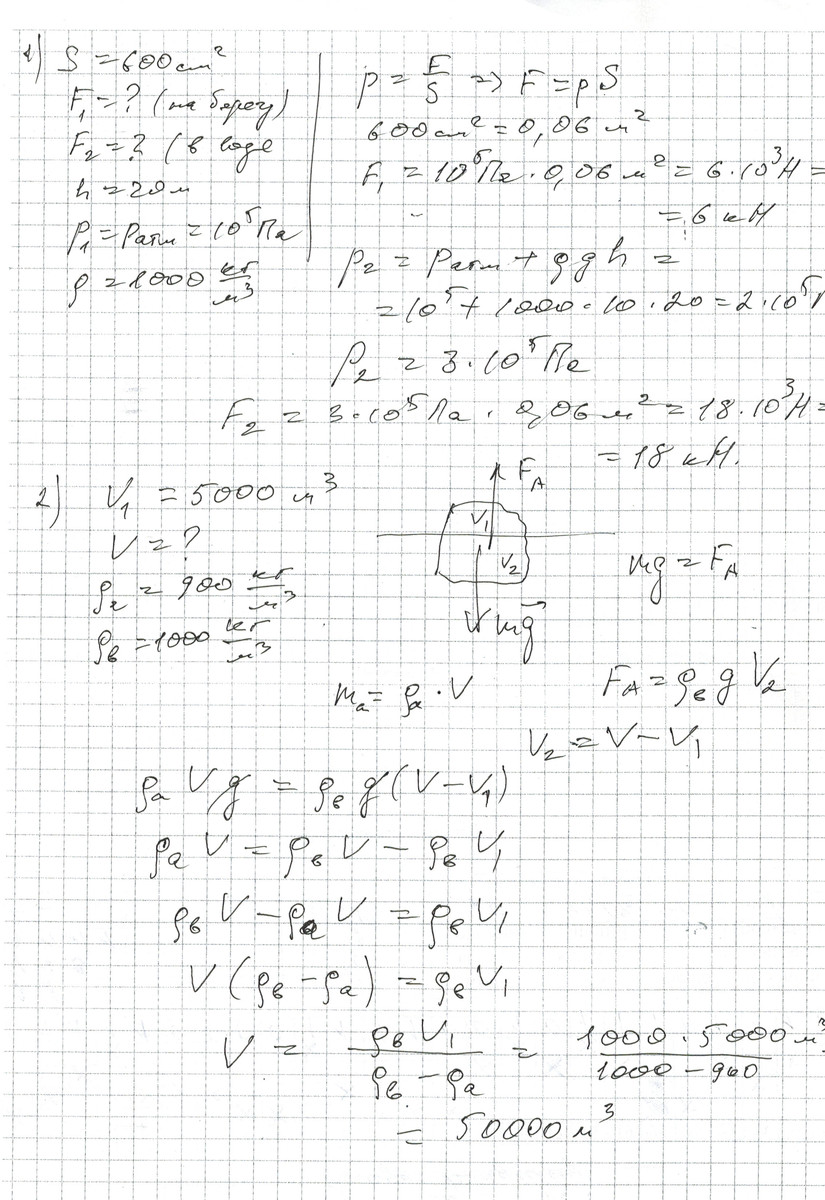 1) S = 600 см²
F₁ = ? (на берегу)
F₂ = ? (в воде
h = 20 м
p₁ = Pатм = 10⁵ Па
ρ = 1000 кг/м³
p = F/S => F = pS
600 см² = 0,06 м²
F₁ = 10⁵ Па · 0,06 м² = 6·10³ Н =
= 6 кН
p₂ = Pатм + ρgh =
= 10⁵ + 1000 · 10 · 20 = 2·10⁵ П
P₂ = 3·10⁵ Па
F₂ = 3·10⁵ Па · 0,06 м² = 18·10³ Н =
= 18 кН.
2) V₁ = 5000 м³
V = ?
ρг = 900 кг/м³
ρв = 1000 кг/м³
F_A
V₁
V₂
mg
mg = F_A
mа = ρа · V
F_A = ρв g V₂
V₂ = V − V₁
ρа V g = ρв g (V − V₁)
ρа V = ρв V − ρв V₁
ρв V − ρа V = ρв V₁
V (ρв − ρа) = ρв V₁
V = ρв V₁ / ρв − ρа = 1000 · 5000 м³ / 1000 − 900
= 50000 м³